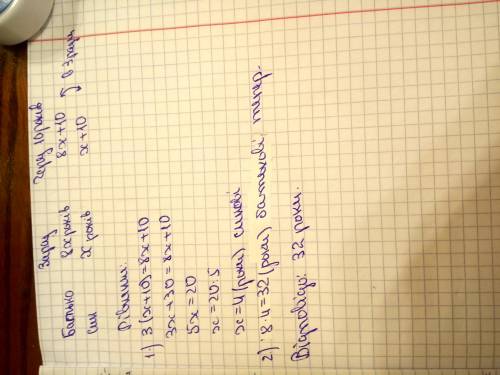 Зараз Через 10 років
Батько 8x років 8x+10
Син x років x+10 в 3 рази
Рівняння:
1) 3(x+10)=8x+10
3x+30=8x+10
5x=20
x=20:5
x=4(роки) синові
2) 8·4=32(роки) батькові тепер.
Відповідь: 32 роки.